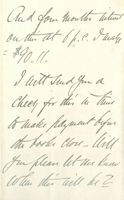 And four months interest
on this at 6 p.c. I make
= $90.11.
I will send you a
check for this in time
to make payment before
the books close. Will
you please let me know
when this will be?